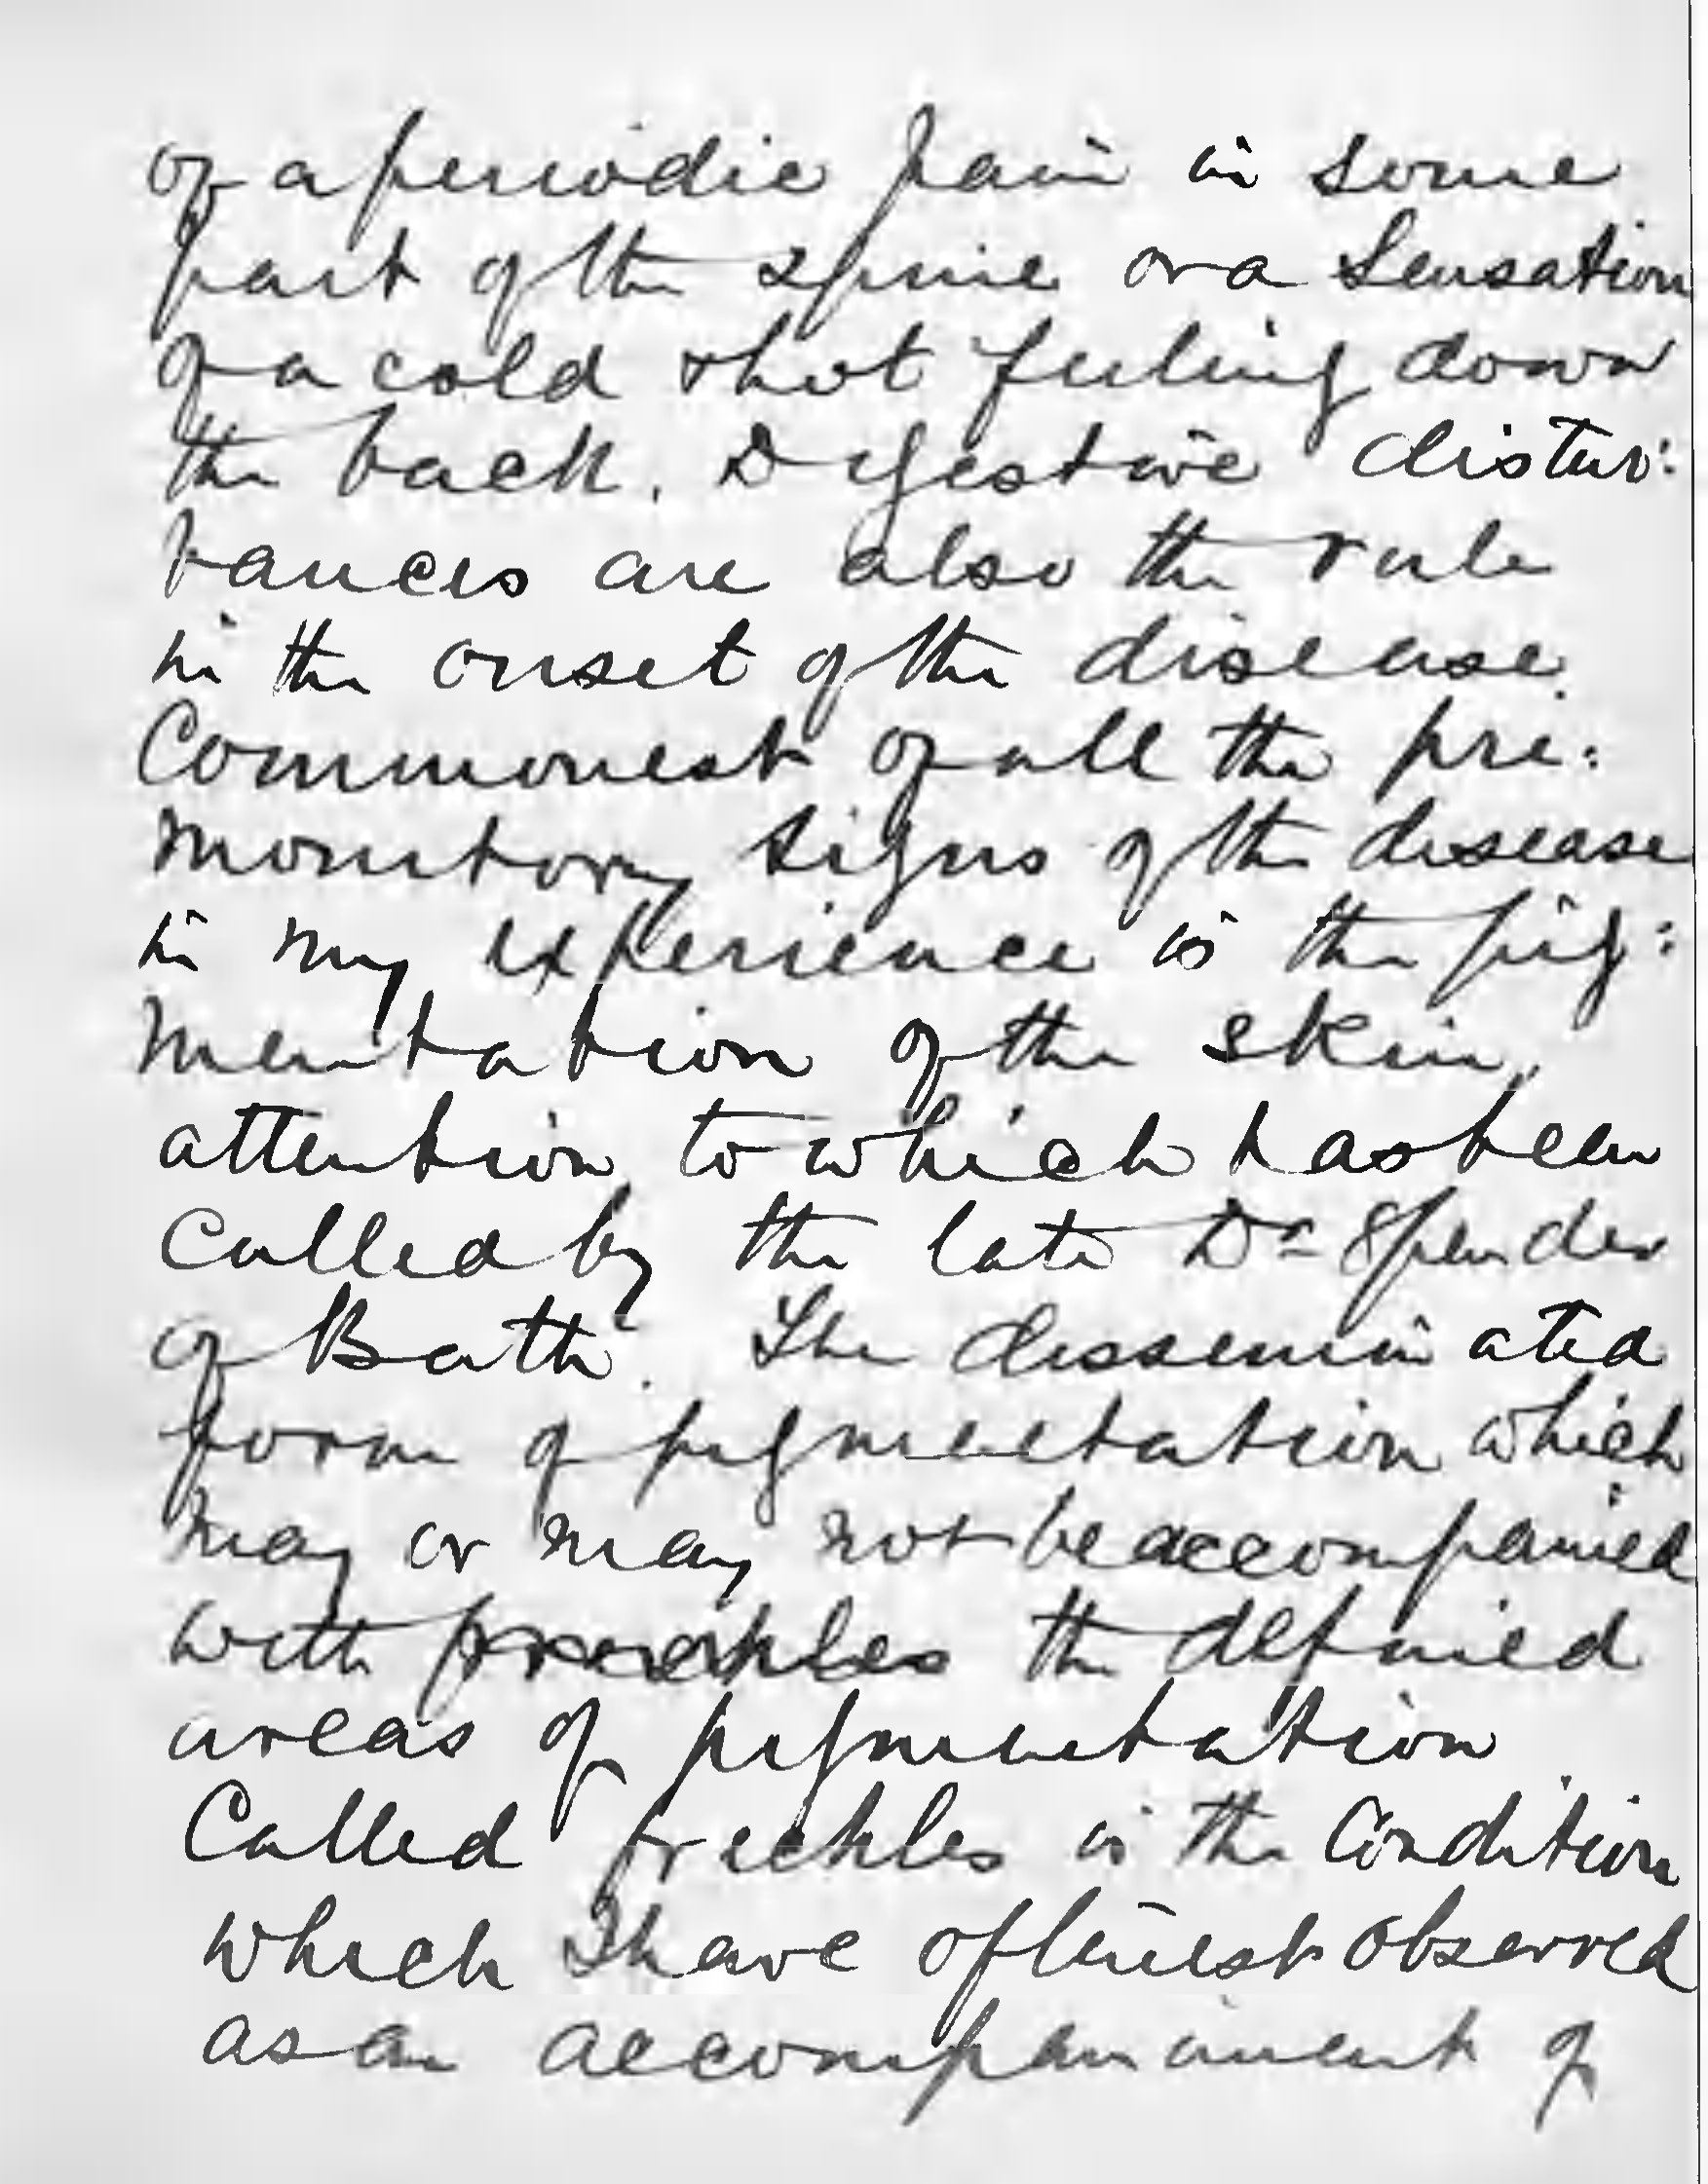 of a periodic pain in some
part of the spine or a sensation
of a cold shot feeling down
the back. Digestive distur:
bances are also the rule
in the onset of the disease.
Commonest of all the pre:
monitory signs of the disease
in my experience is the pig:
mentation of the skin,
attention to which has been
called by the late Dr Spender
of Bath. The disseminated
form of pigmentation which
may or may not be accompanied
with the defined
areas of pigmentation
called freckles is the condition
which I have oftenest observed
as an accompaniment of